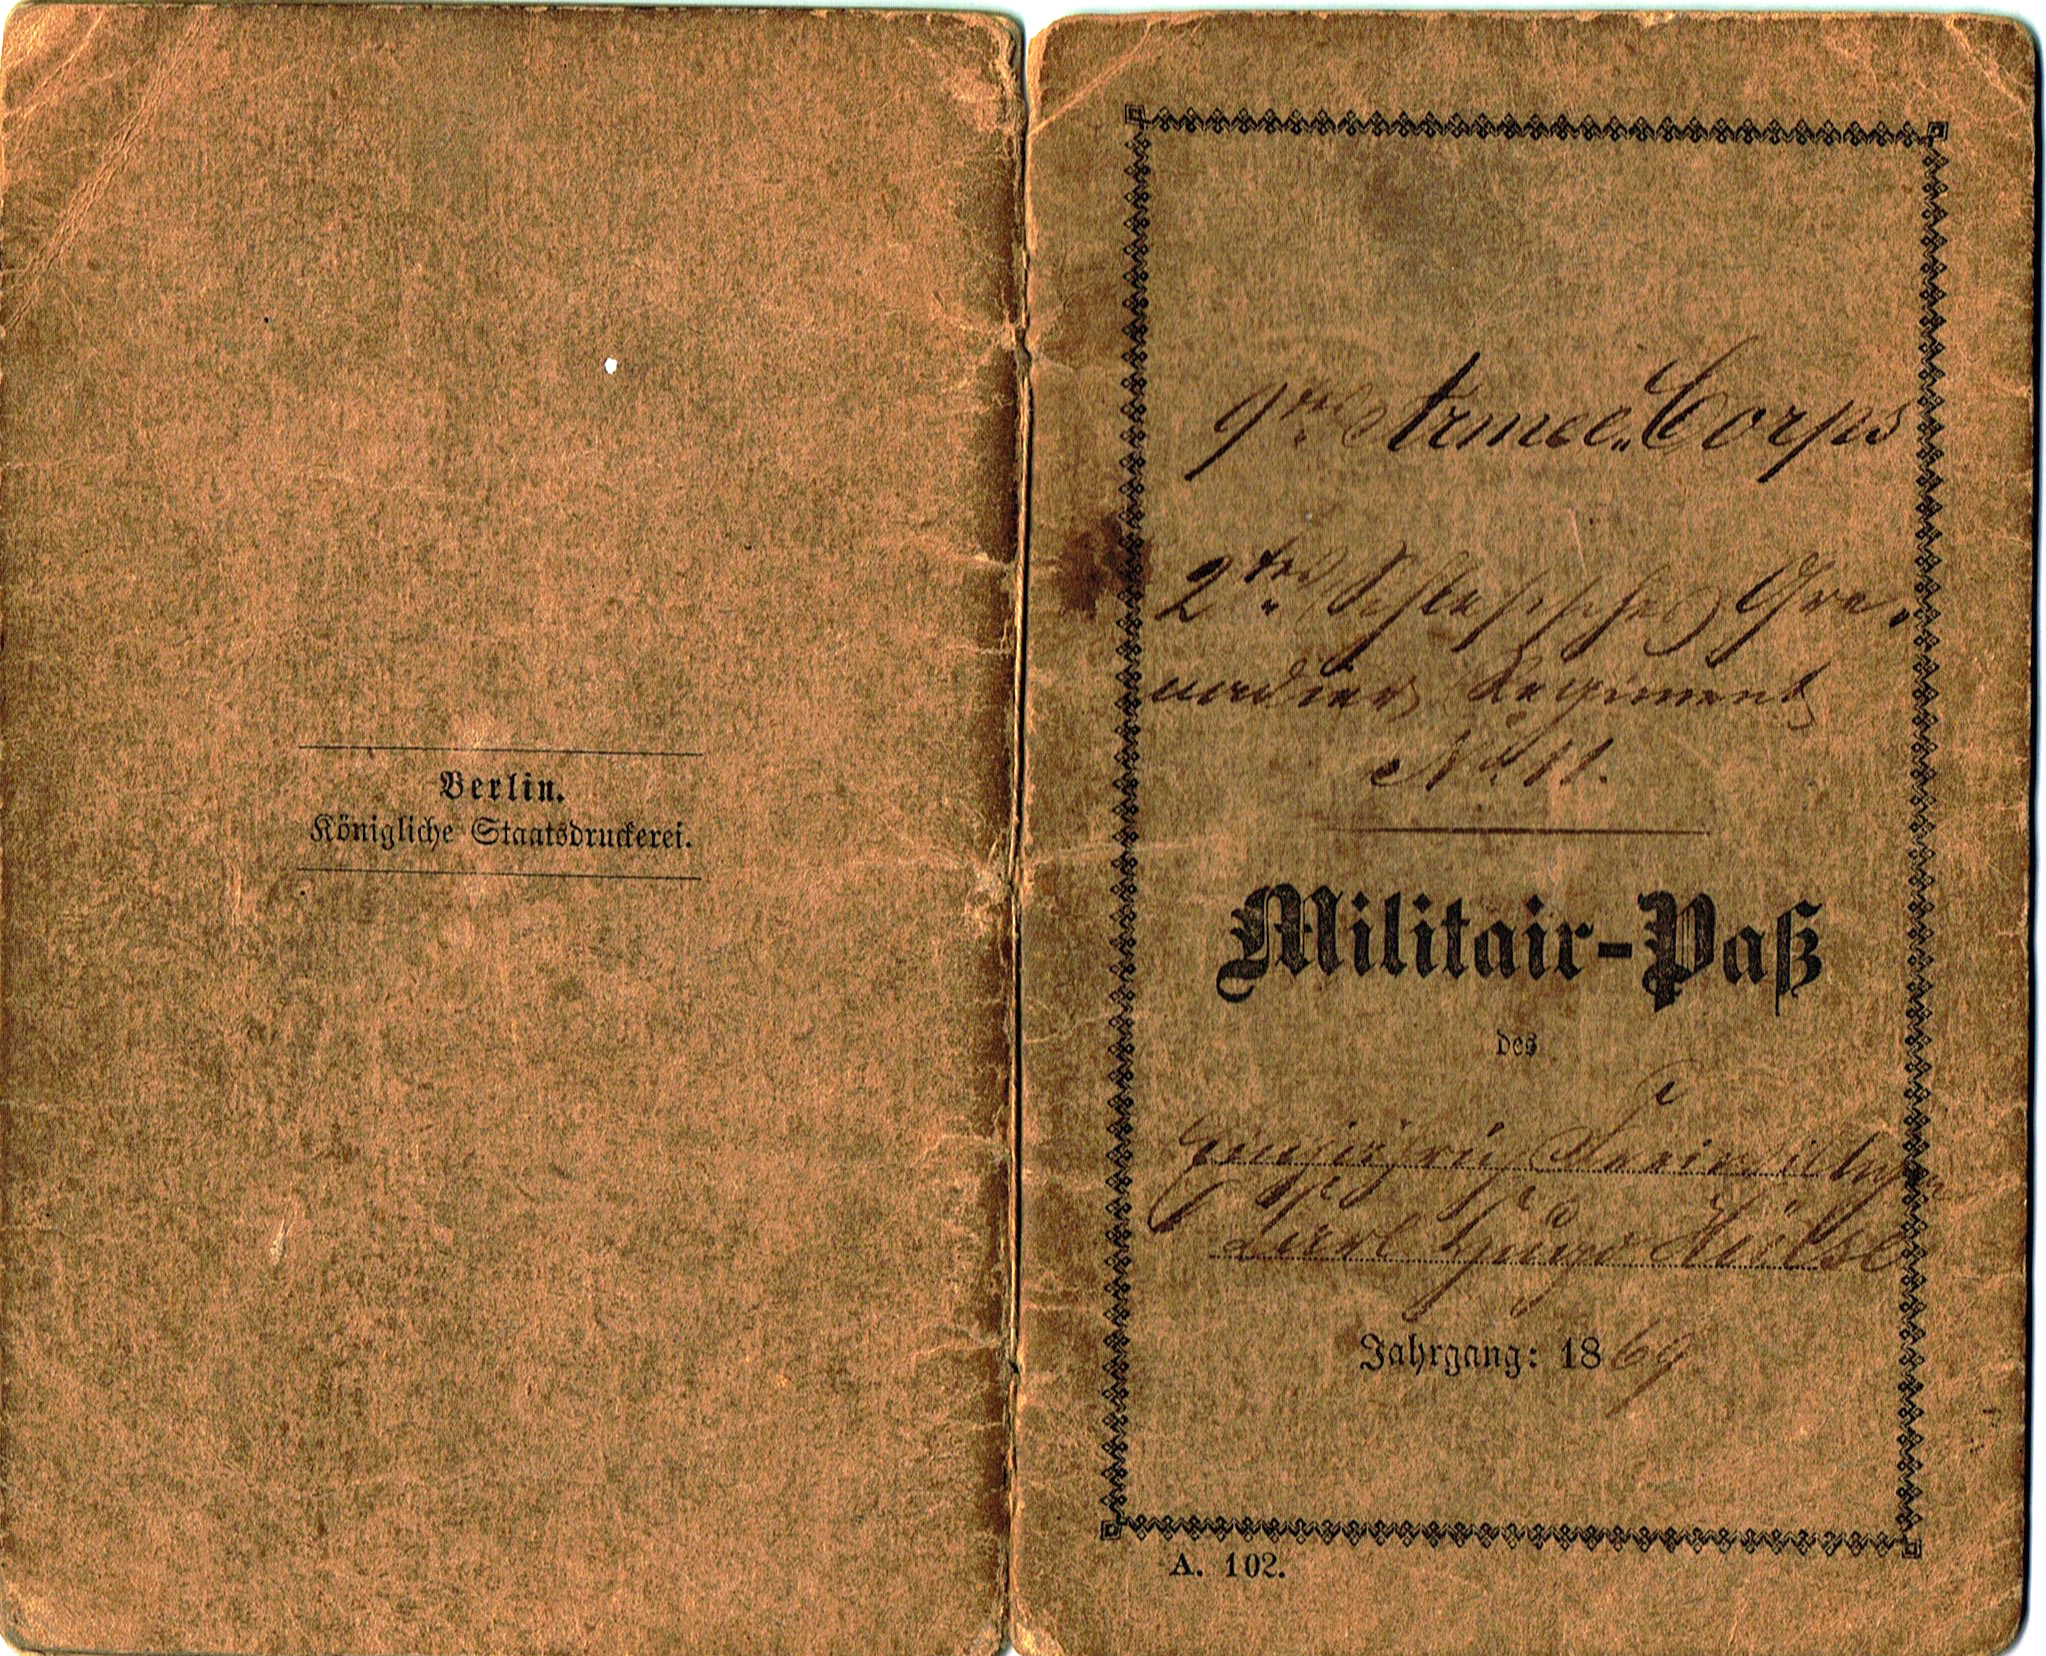 Berlin.
Königliche Staatsdruckerei.
9tes Armee-Corps
2tes Schlesisches Gre-
nadier Regiment
No 11.
Militair-Paß
des
Einjährig Freiwilligen
Carl Hugo Hülse
Jahrgang: 1869
A. 102.